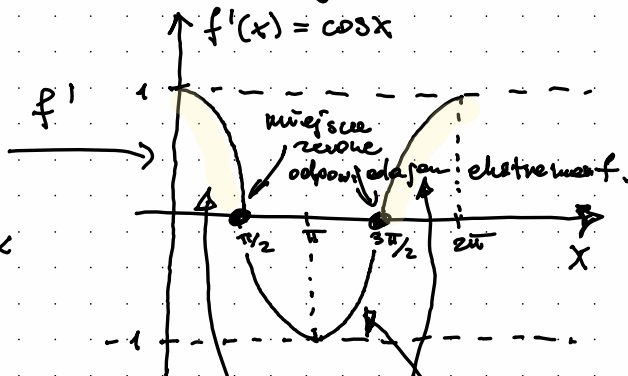 f'(x) = cosx
f'
1
miejsce
zerowe
odpowiadają ekstremom f.
π/2
π
3π/2
2π
X
-1